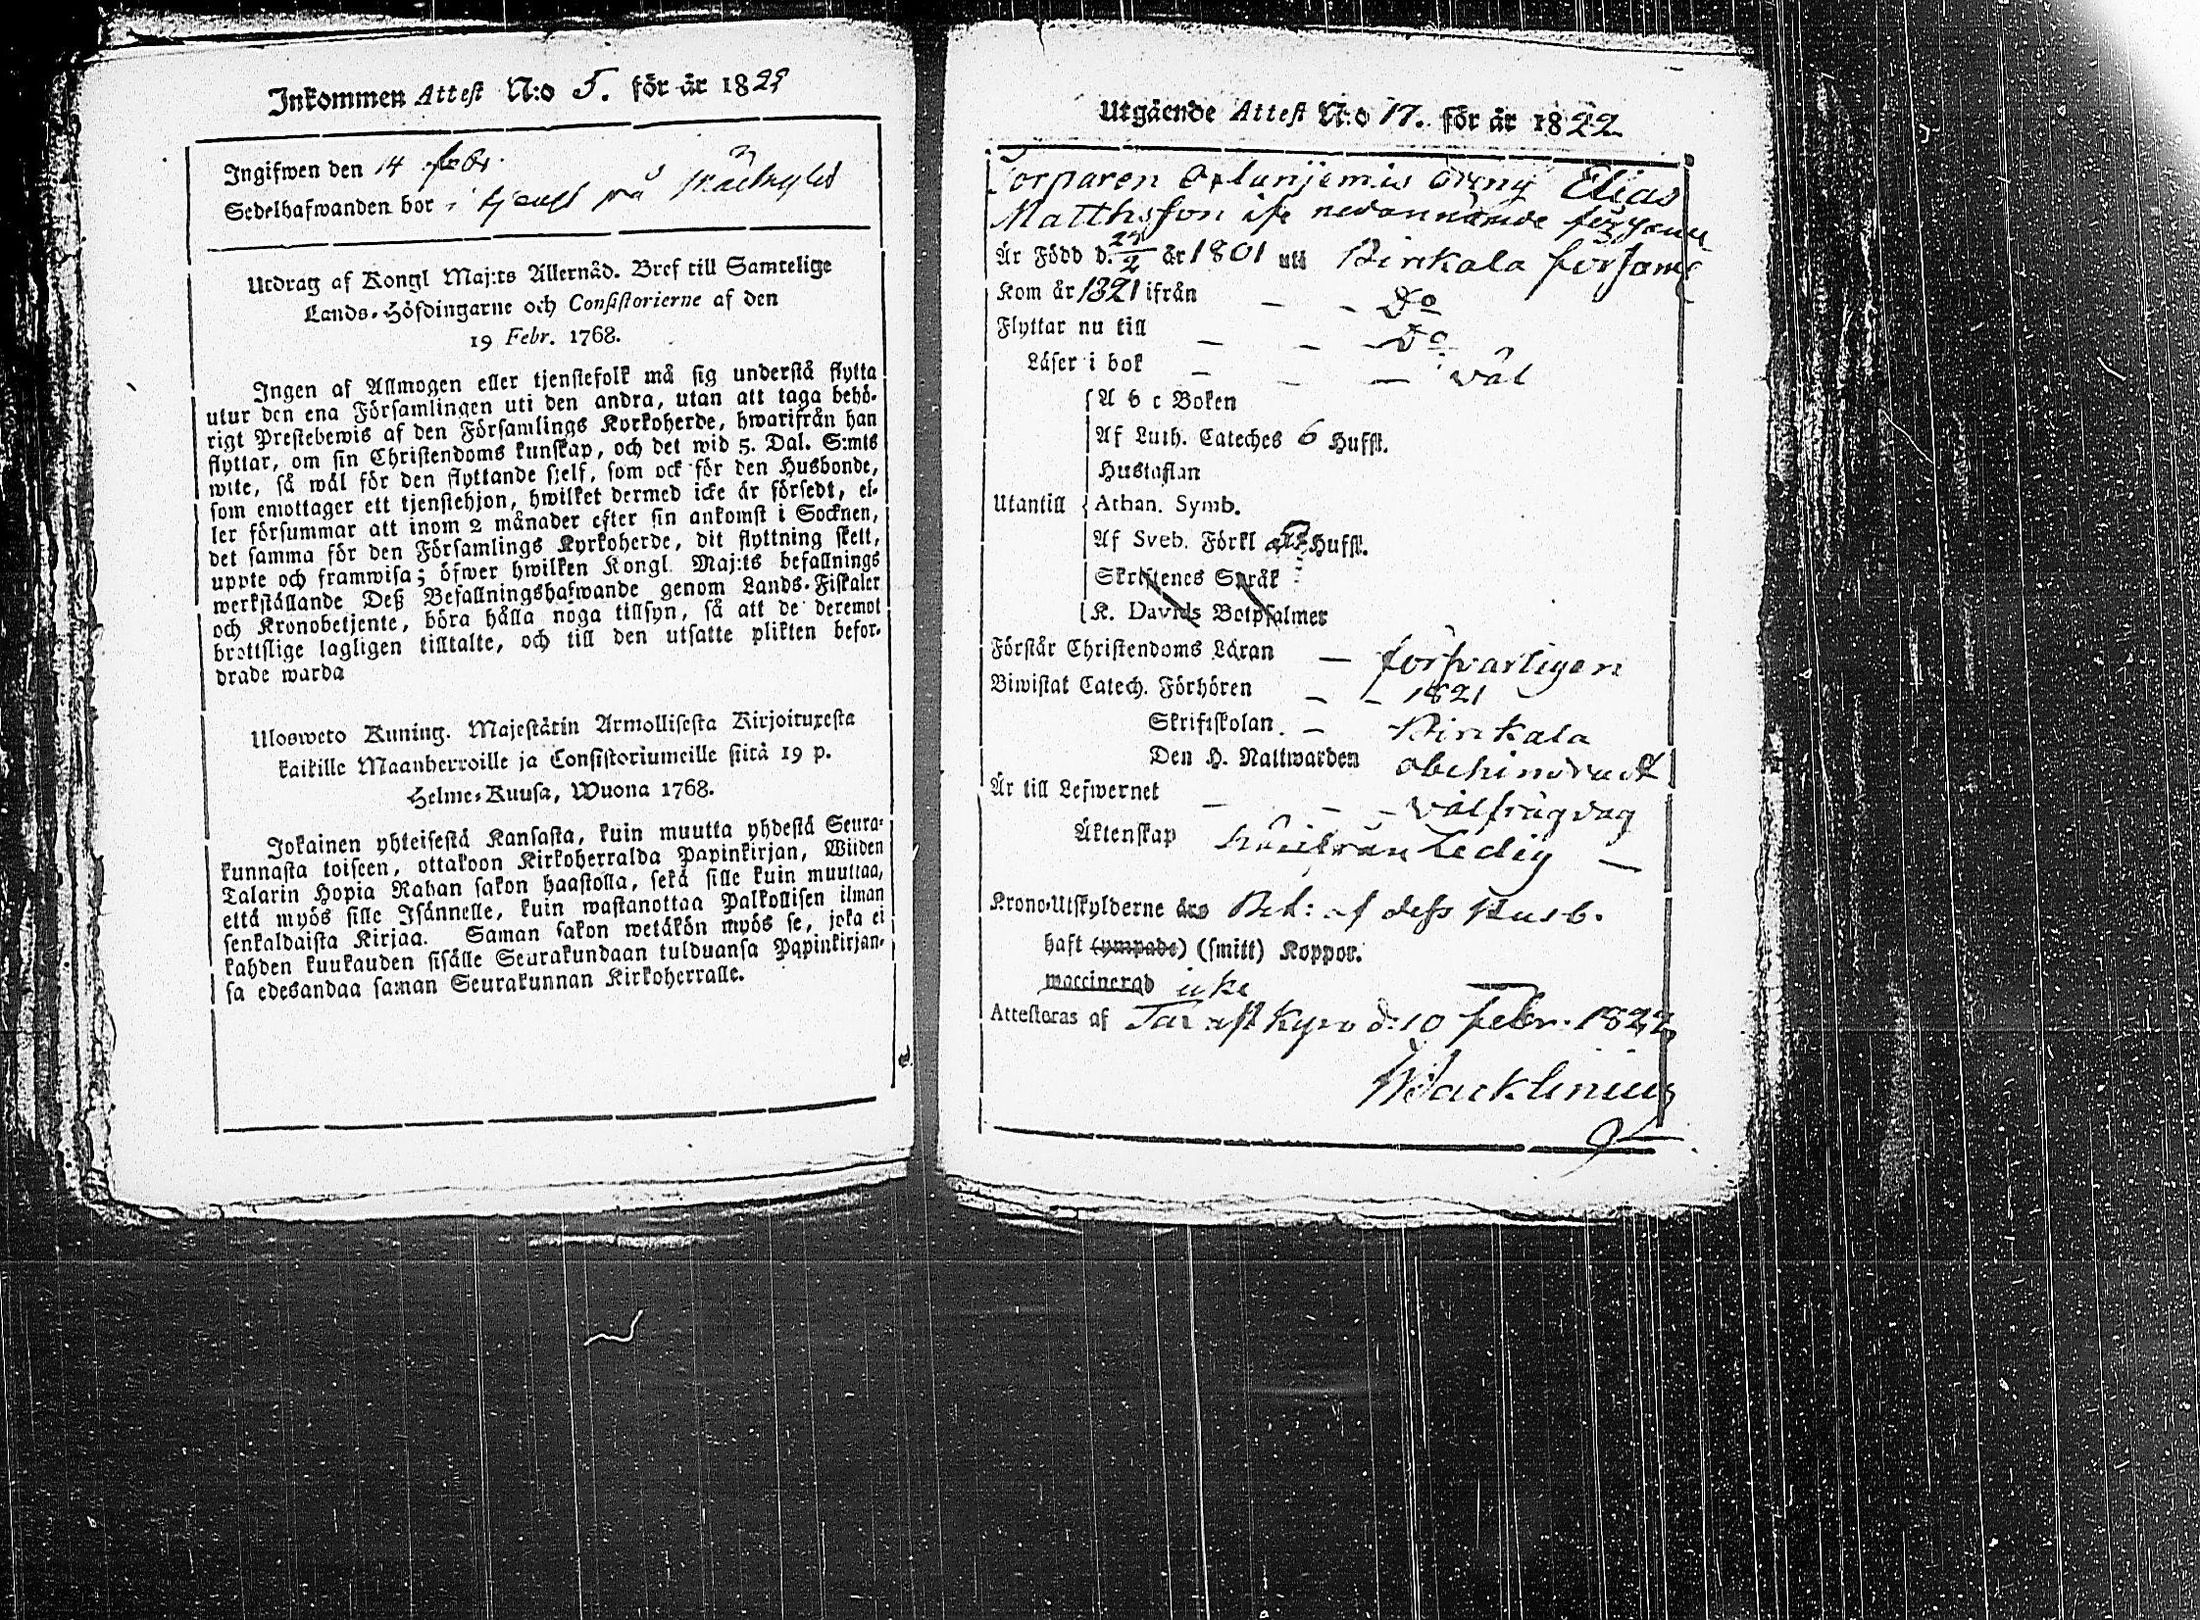 Inkommen Attest N:o 5. för år 1822
Ingifwen den 14 febr.
Sedelhafwanden bor i tjenst på
Utdrag af Kongl Maj:ts Allernåd. Bref till Samtelige
Lands-Höfdingarne och Consistorierne af den
19 Febr. 1768.
Ingen af Allmogen eller tjenstefolk må sig understå flytta
utur den ena Församlingen uti den andra, utan att taga behö-
rigt Prestebewis af den Församlings Kyrkoherde, hwarifrån han
flyttar, om sin Christendoms kunskap, och det wid 5. Dal. S:mts
wite, så wäl för den flyttande sjelf, som ock för den Husbonde,
som emottager ett tjenstehjon, hwilket dermed icke är försedt, el-
ler försummar att inom 2 månader efter sin ankomst i Socknen,
det samma för den Församlings Kyrkoherde, dit flyttning skett,
uppte och framwisa; öfwer hwilken Kongl. Maj:ts befallnings
werkställande Deß Befallningshafwande genom Lands-Fiskaler
och Kronobetjente, böra hålla noga tillsyn, så att de deremot
brottslige lagligen tilltalte, och till den utsatte plikten befor-
drade warda
Ulosweto Kuning. Majestätin Armollisesta Kirjoituxesta
kaikille Maanherroille ja Consistoriumeille siitä 19 p.
Helme-Kuusa, Wuona 1768.
Jokainen yhteisestä Kansasta, kuin muutta yhdestä Seura-
kunnasta toiseen, ottakoon Kirkoherralda Papinkirjan, Wiiden
Talarin Hopia Rahan sakon haastolla, sekä sille kuin muuttaa,
että myös sille Isännelle, kuin wastanottaa Palkollisen ilman
senkaldaista Kirjaa. Saman sakon wetäkön myös se, joka ei
kahden kuukauden sisälle Seurakundaan tulduansa Papinkirjan-
sa edesandaa saman Seurakunnan Kirkoherralle.
Utgående Attest N:o 17. för år 1822
Torparen dreng Elias
Matthsson nedannämde
Är Född d. 27/2 år 1801 uti Birkala församl
Kom år 1821 ifrån — — Do
Flyttar nu till — — — Do
Läser i bok — — — wäl
A b c Boken
Af Luth. Cateches 6 Hufst.
Hustaflan
Utantill Athan. Symb.
Af Sveb. Förkl Hufst.
Skriftenes Språk
K. Davids Botpsalmer
Förstår Christendoms Läran — försvarligen
Biwistat Catech. Förhören — — 1821
Skriftskolan. — Birkala
Den H. Nattwarden obehindradt
Är till Lefwernet — — — wälfrägdag
Äktenskap härifrån Ledig —
Krono-Utskylderne äro Bet: af dess Husb.
haft (ympade) (smitt) Koppor.
waccinerad icke
Attesteras af Tavastkyro d. 10 Febr. 1822